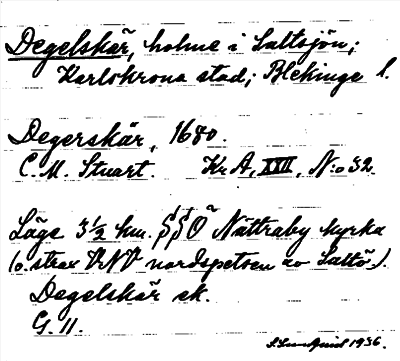 Degelskär, holme i Saltsjön;
Karlskrona stad; Blekinge l.
Degerskär, 1680.
C. M. Stuart. Kr A, XVII, N:o 32
Läge 3½ km. SSO Nättraby kyrka
(o. strax VNV nordspetsen av Saltö.).
Degelskär ek.
G. 11.
1936.